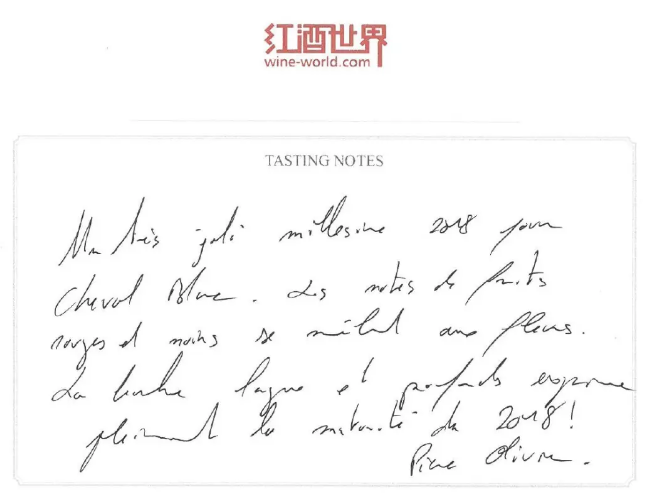 红酒世界
wine-world.com
TASTING NOTES
Un très joli millésime 2018 pour
Cheval Blanc. Les notes de fruits
rouges et noirs se mêlent aux fleurs.
La bouche large et profonde exprime
pleinement la maturité du 2018!
Pierre Olivier.